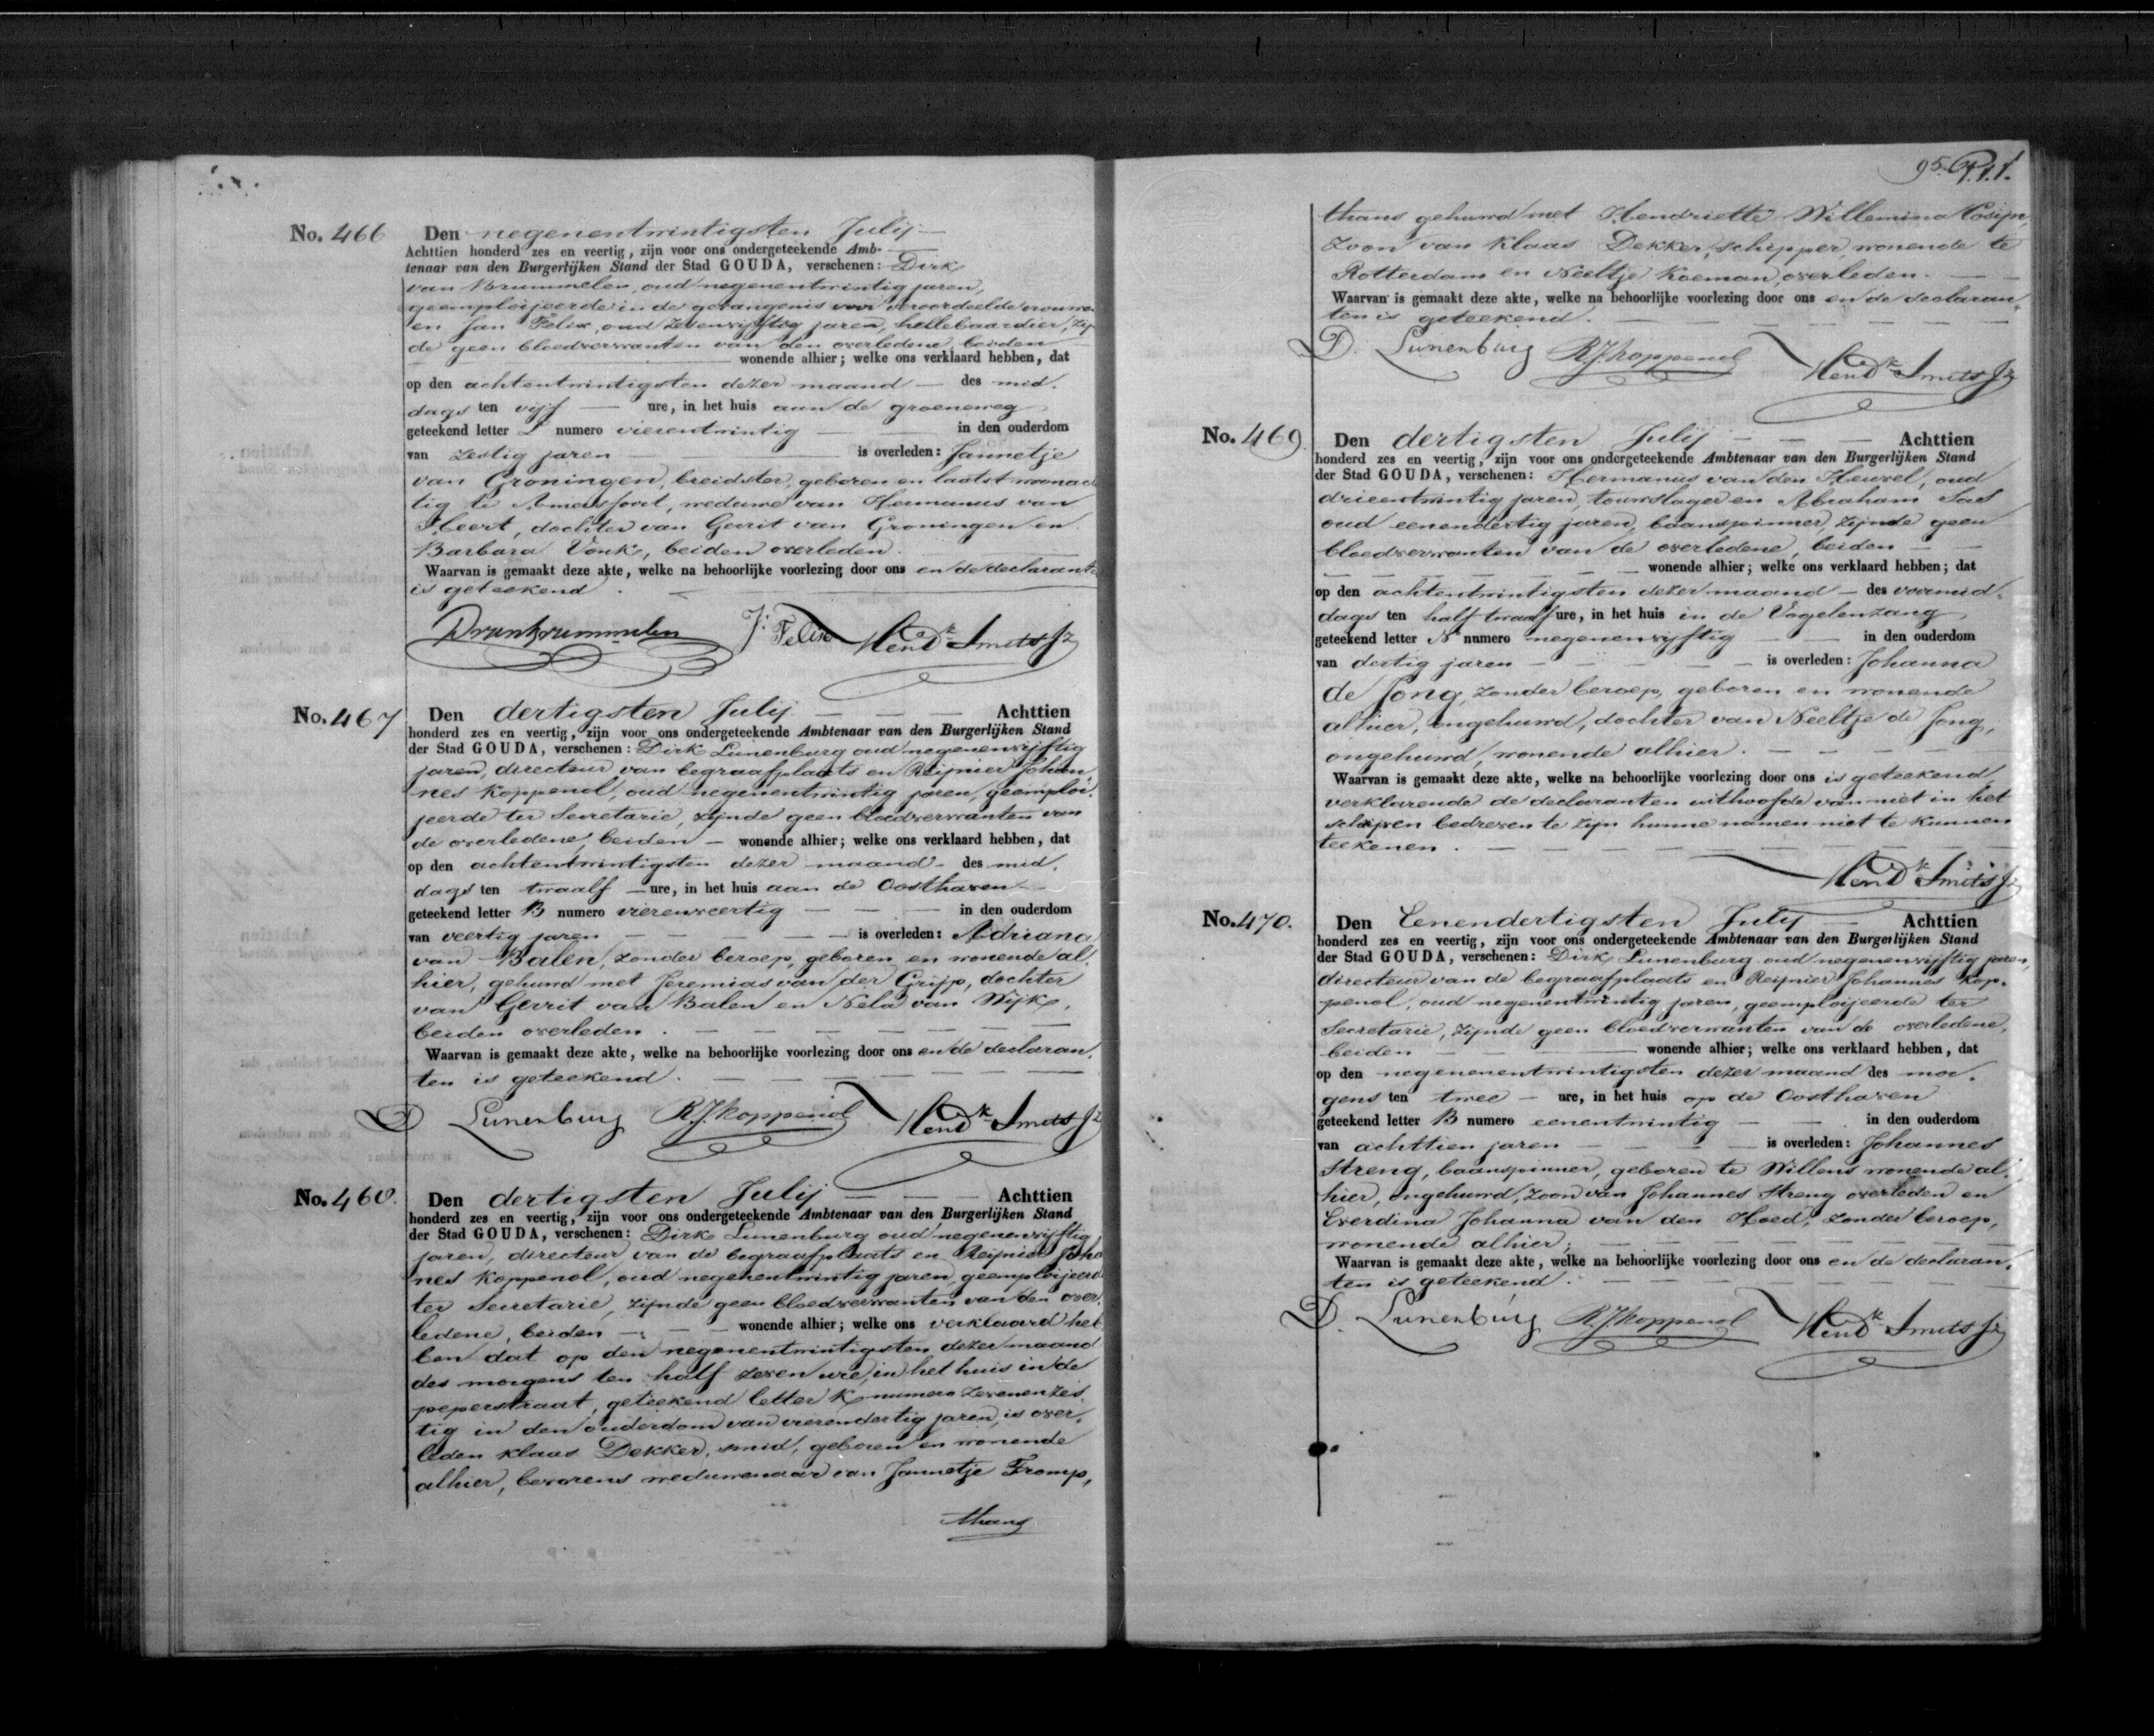 No. 466 Den negenentwintigsten Julij
Achttien honderd zes en veertig, zijn voor ons ondergeteekende Amb-
tenaar van den Burgerlijken Stand der Stad GOUDA, verschenen: Dirk
van Brummelen, oud negenentwintig jaren,
geemploijeerde in de gevangenis voor veroordeelde vrouwen
en Jan Felix, oud zevenvijftig jaren, hellebaardier, zijn
de geen bloedverwanten van den overledene, beiden
wonende alhier; welke ons verklaard hebben, dat
op den achtentwintigsten dezer maand des mid,
dags ten vijf ure, in het huis aan de groeneweg
geteekend letter L numero vierentwintig in den ouderdom
van zestig jaren is overleden: Jannetje
van Groningen, breidster, geboren en laatst woonach
tig te Amersfoort, weduwe van Hermanus van
Heert, dochter van Gerrit van Groningen en
Barbara Vonk, beiden overleden.
Waarvan is gemaakt deze akte, welke na behoorlijke voorlezing door ons en de declarante
is geteekend.
DvanBrummelen J: Felix Hendk Smits Jz
No. 467 Den dertigsten Julij Achttien
honderd zes en veertig, zijn voor ons ondergeteekende Ambtenaar van den Burgerlijken Stand
der Stad GOUDA, verschenen: Dirk Lunenburg oud negenenvijftig
jaren, directeur van begraafplaats en Reijnier Johan
nes Koppenol, oud negenentwintig jaren, geemploi,
jeerde ter Secretarie, zijnde geen bloedverwanten van
de overledene, beiden wonende alhier; welke ons verklaard hebben, dat
op den achtentwintigsten dezer maand des mid,
dags ten twaalf ure, in het huis aan de Oosthaven
geteekend letter B numero vierenveertig in den ouderdom
van veertig jaren is overleden: Adriana
van Balen, zonder beroep, geboren en wonende al,
hier, gehuwd met Jeremias van der Grijp, dochter
van Gerrit van Balen en Nela van Wijk,
beiden overleden.
Waarvan is gemaakt deze akte, welke na behoorlijke voorlezing door ons en de declaran,
ten is geteekend.
D Lunenburg R.J. Koppenol Hendk Smits Jz
No. 468. Den dertigsten Julij Achttien
honderd zes en veertig, zijn voor ons ondergeteekende Ambtenaar van den Burgerlijken Stand
der Stad GOUDA, verschenen: Dirk Lunenburg oud negenenvijftig
jaren, directeur van de begraafplaats en Reijnier Joha
nes Koppenol, oud negenentwintig jaren, geemploijeerd
ter Secretarie, zijnde geen bloedverwanten van den over,
ledene, beiden wonende alhier; welke ons verklaard heb
ben dat op den negenentwintigsten dezer maand
des morgens ten half zeven ure, in het huis in de
peperstraat, geteekend letter K numero zevenenzes,
tig in den ouderdom van vierendertig jaren, is over,
leden Klaas Dekker, smid, geboren en wonende
alhier, bevorens weduwenaar van Jannetje Tromp,
thans
95.
thans gehuwd met Hendriette Willemina Cosijn,
zoon van Klaas Dekker, schipper, wonende te
Rotterdam en Neeltje Koeman, overleden.
Waarvan is gemaakt deze akte, welke na behoorlijke voorlezing door ons en de declaran,
ten is geteekend.
D. Lunenburg R.J. Koppenol Hendk Smits Jz
No. 469. Den dertigsten Julij Achttien
honderd zes en veertig, zijn voor ons ondergeteekende Ambtenaar van den Burgerlijken Stand
der Stad GOUDA, verschenen: Hermanus van den Heuvel, oud
drieentwintig jaren, touwslager en Abraham Sas
oud eenendertig jaren, baanspinner, zijnde geen
bloedverwanten van de overledene, beiden
wonende alhier; welke ons verklaard hebben; dat
op den achtentwintigsten dezer maand des voormid,
dags ten half twaalf ure, in het huis in de Vogelenzang
geteekend letter N numero negenenvijftig in den ouderdom
van dertig jaren is overleden: Johanna
de Jong, zonder beroep, geboren en wonende
alhier, ongehuwd, dochter van Neeltje de Jong,
ongehuwd, wonende alhier.
Waarvan is gemaakt deze akte, welke na behoorlijke voorlezing door ons is geteekend,
verklarende de declaranten uithoofde van niet in het
schrijven bedreven te zijn hunne namen niet te kunnen
teekenen.
Hendk Smits Jz
No. 470. Den Eenendertigsten Julij Achttien
honderd zes en veertig, zijn voor ons ondergeteekende Ambtenaar van den Burgerlijken Stand
der Stad GOUDA, verschenen: Dirk Lunenburg oud negenenvijftig jaren,
directeur van de begraafplaats en Reijnier Johannes Kop,
penol, oud negenentwintig jaren, geemploijeerde ter
Secretarie, zijnde geen bloedverwanten van de overledene,
beiden wonende alhier; welke ons verklaard hebben, dat
op den negenenentwintigsten dezer maand des mor,
gens ten twee ure, in het huis op de Oosthaven
geteekend letter B numero eenentwintig in den ouderdom
van achttien jaren is overleden: Johannes
Streng, baanspinner, geboren te Willens wonende al,
hier, ongehuwd, zoon van Johannes Streng overleden en
Everdina Johanna van den Hoed, zonder beroep,
wonende alhier;
Waarvan is gemaakt deze akte, welke na behoorlijke voorlezing door ons en de declaran,
ten is geteekend.
D. Lunenburg R.J. Koppenol Hendk Smits Jz